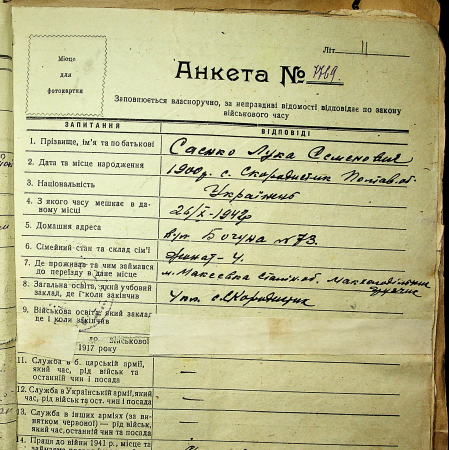 Літ. 11
Місце
для
фотокартки
Анкета № 7769.
Заповнюється власноручно, за неправдиві відомості відповідає по закону
військового часу
ЗАПИТАННЯ ВІДПОВІДІ
1. Прізвище, ім'я та по батькові Саєнко Лука Семенович
2. Дата та місце народження 1900 р. с. Скородистик Полтав. об.
3. Національність Українець
4. З якого часу мешкає в да-
ному місці 26/X-1942р
5. Домашня адреса вул. Богуна №73.
6. Сімейний стан та склад сім'ї 4.
7. Де проживав та чим займався
до переїзду в дане місце м. Макеевка Сталін. об.
8. Загальна освіта, який учбовий
заклад, де і коли закінчив с. Скородищик
9. Військова освіта, який заклад
де і коли закінчив
до військової
1917 року
11. Служба в б. царській армії,
який час, рід військ та
останній чин і посада —
12. Служба в Українській армії, який
час, рід військ та ост. чин і посада —
13. Служба в інших арміях (за ви-
нятком червоної) — рід військ,
який час, останній чин і посада —
14. Праця до війни 1941 р., місце та